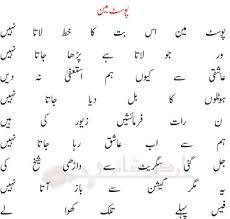 پوسٹ مین
پوسٹ مین اس بت کا خط لاتا نہیں
ور جو لاتا ہے پڑھا جاتا نہیں
عاشقی سے کیوں ہم استعفیٰ نہ دیں
ہوٹلوں کا بل دیا جاتا نہیں
ن رات فرمائشیں زیور کی ہیں
ہم سے اب عاشق رہا جاتا نہیں
جل گئی سگریٹ سے داڑھی شیخ کی
یہ مگر فیشن سے باز آتا نہیں
فیس پہلے تلک کھوا لے